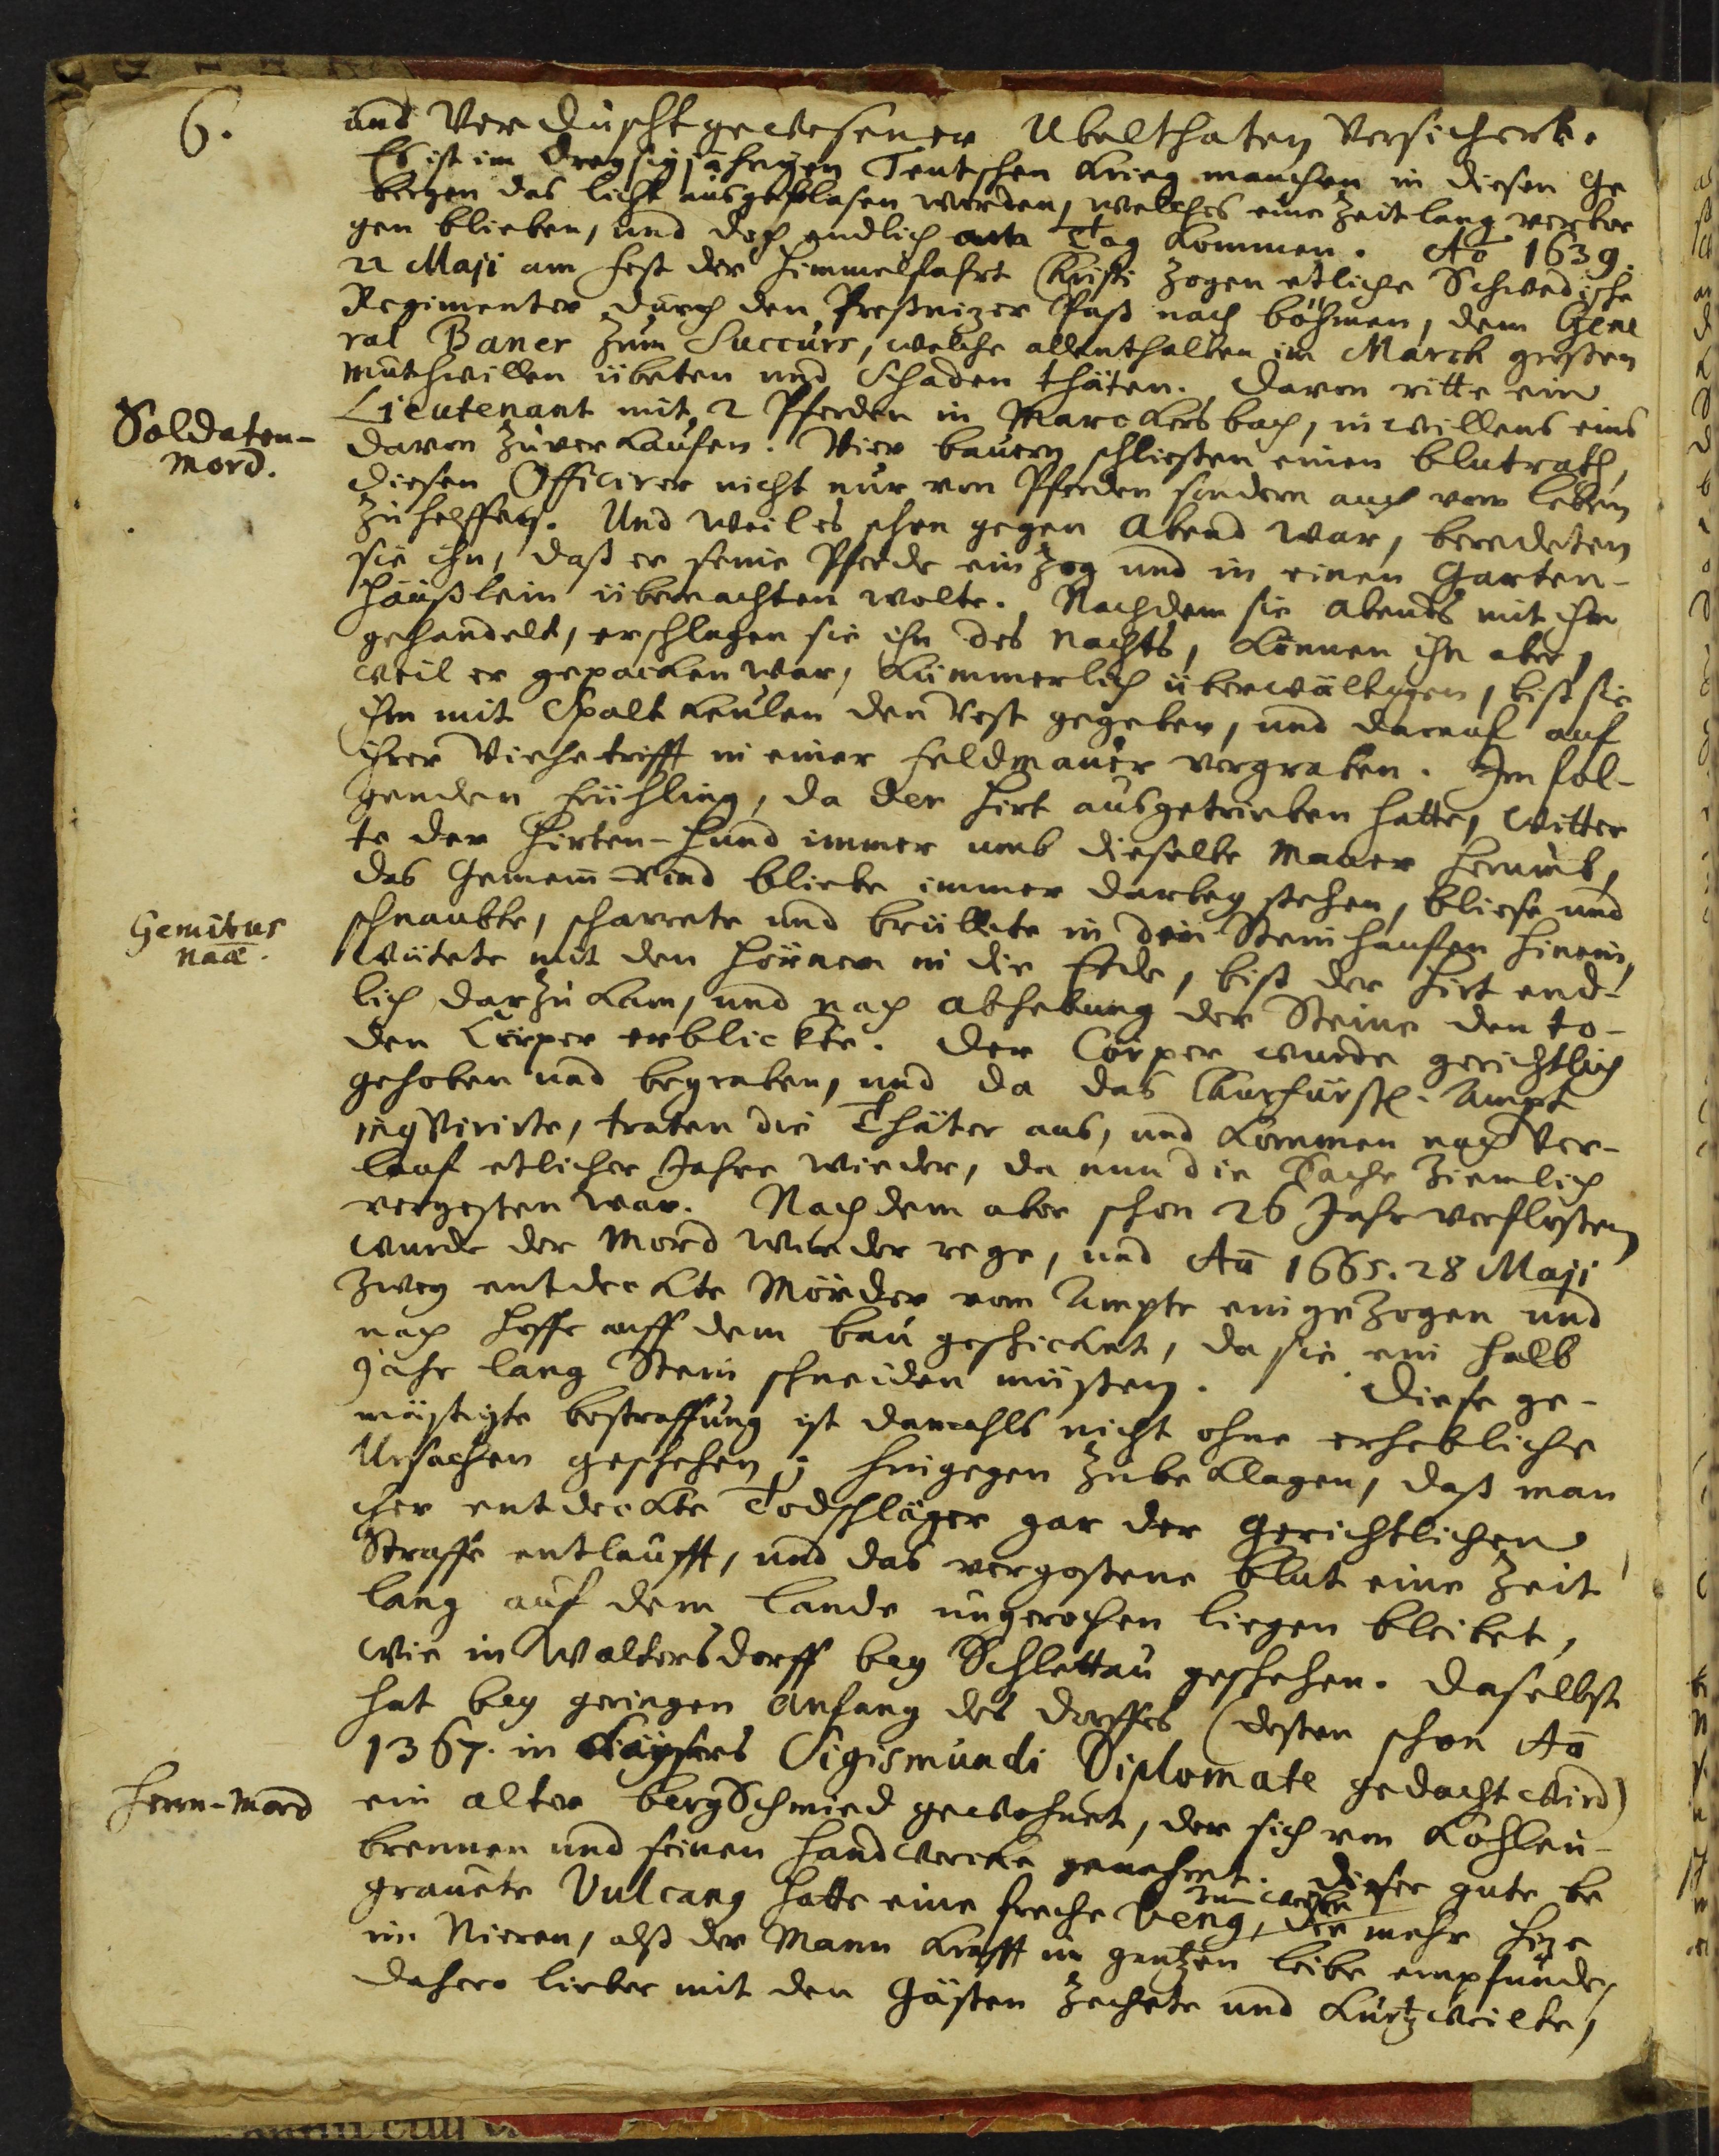 6.
und Verduscht gewesener Ubelthaten versichert.
Es ist im dreysigjährigen Teutschen Krieg manchen in diesen Ge
bergen das licht ausgeblasen worden, welches eine Zeitlang verbor
gen blieben, und doch endlich an Tag kommen. Ao 1639.
22 Maji am fest der Himmelfahrt Christi zogen etliche Schwedische
Regimenter durch den Preßnizer Paß nach böhmen, dem Gene
ral Baner zum Succurs, welche allenthalben im March großen
muthwillen übeten und schaden thäten. Davon ritte ein
Lieutenant mit 2 Pferden in Marckersbach, in willens eins
Soldaten-
mord.
davon zuverkaufen. Vier bauern schliesten einen blutrath,
diesen Officirer nicht nur von Pferden sondern auch vom leben
zuhelffen. Und weil es schon gegen Abend war, beredeten
sie ihn, daß er seine Pferde einzog und in einen Garten-
häußlein übernachten wolte. Nachdem sie abends mit ihm
gehandelt, erschlagen sie ihn des Nachts, können ihn aber,
weil er gepacken war, kümmerlich überwältigen, biß sie
ihm mit Spaltkeulen den Rest gegeben, und darauf auf
ihrer Viehetrifft in einer feldmauer vergraben. Im fol-
genden frühling, da der Hirt ausgetrieben hatte, witter
te der Hirten-Hund immer umb dieselbe Mauer herumb,
das Gemein-Rind bliebe immer darbey stehen, bliese und
Gemitus
naae.
schnaubte, scharrete und brüllete in den Steinhauffen hinein,
wütete mit den Hörnern in die Erde, biß der Hirt end-
lich darzu kam, und nach abhebung der Steine den to-
den Cörper erblickte. Der Cörper wurde gerichtlich
gehoben und begraben, und da das Churfürstl. Ampt
inqvirirte, traten die Thäter aus, und kommen nach Ver-
lauf etlicher Jahre wieder, da nun die Sache ziemlich
vergesten war. Nachdem aber schon 26 Jahr verflosten
wurde der Mord wieder rege, und Ao 1665. 28 Maji
zwey entdeckte Mörder vom Ampte eingezogen und
nach Hoffe auff dem bau geschicket, da sie ein halb
jahr lang Stein schneiden müsten. Diese ge-
mästigte bestraffung ist damahls nicht ohne erhebliche
Ursachen geschehen; Hingegen zubeklagen, daß man
cher entdeckte Todschläger gar der Gerichtlichen
Straffe entlaufft, und das vergostene blut eine Zeit
lang auf dem Lande ungerochen liegen bleibet,
wie in Waltersdorff bey Schlettau geschehen. Daselbst
hat bey geringen Anfang des Dorffes (desten schon Ao
1367. in Käysers Sigismundi Diplomate gedacht wird)
Herrn-Mord
ein alter bergSchmied gewohnet, der sich von Kohlen-
brennen und seinen Handwercke genehret. Dieser gute be
grauete Vulcang hatte eine freche Veng, zum weibe die mehr hize
in Nieren, alß der Mann krafft im gantzen leibe empfunde,
dahero lieber mit den Gästen zechete und kurtzweilte,